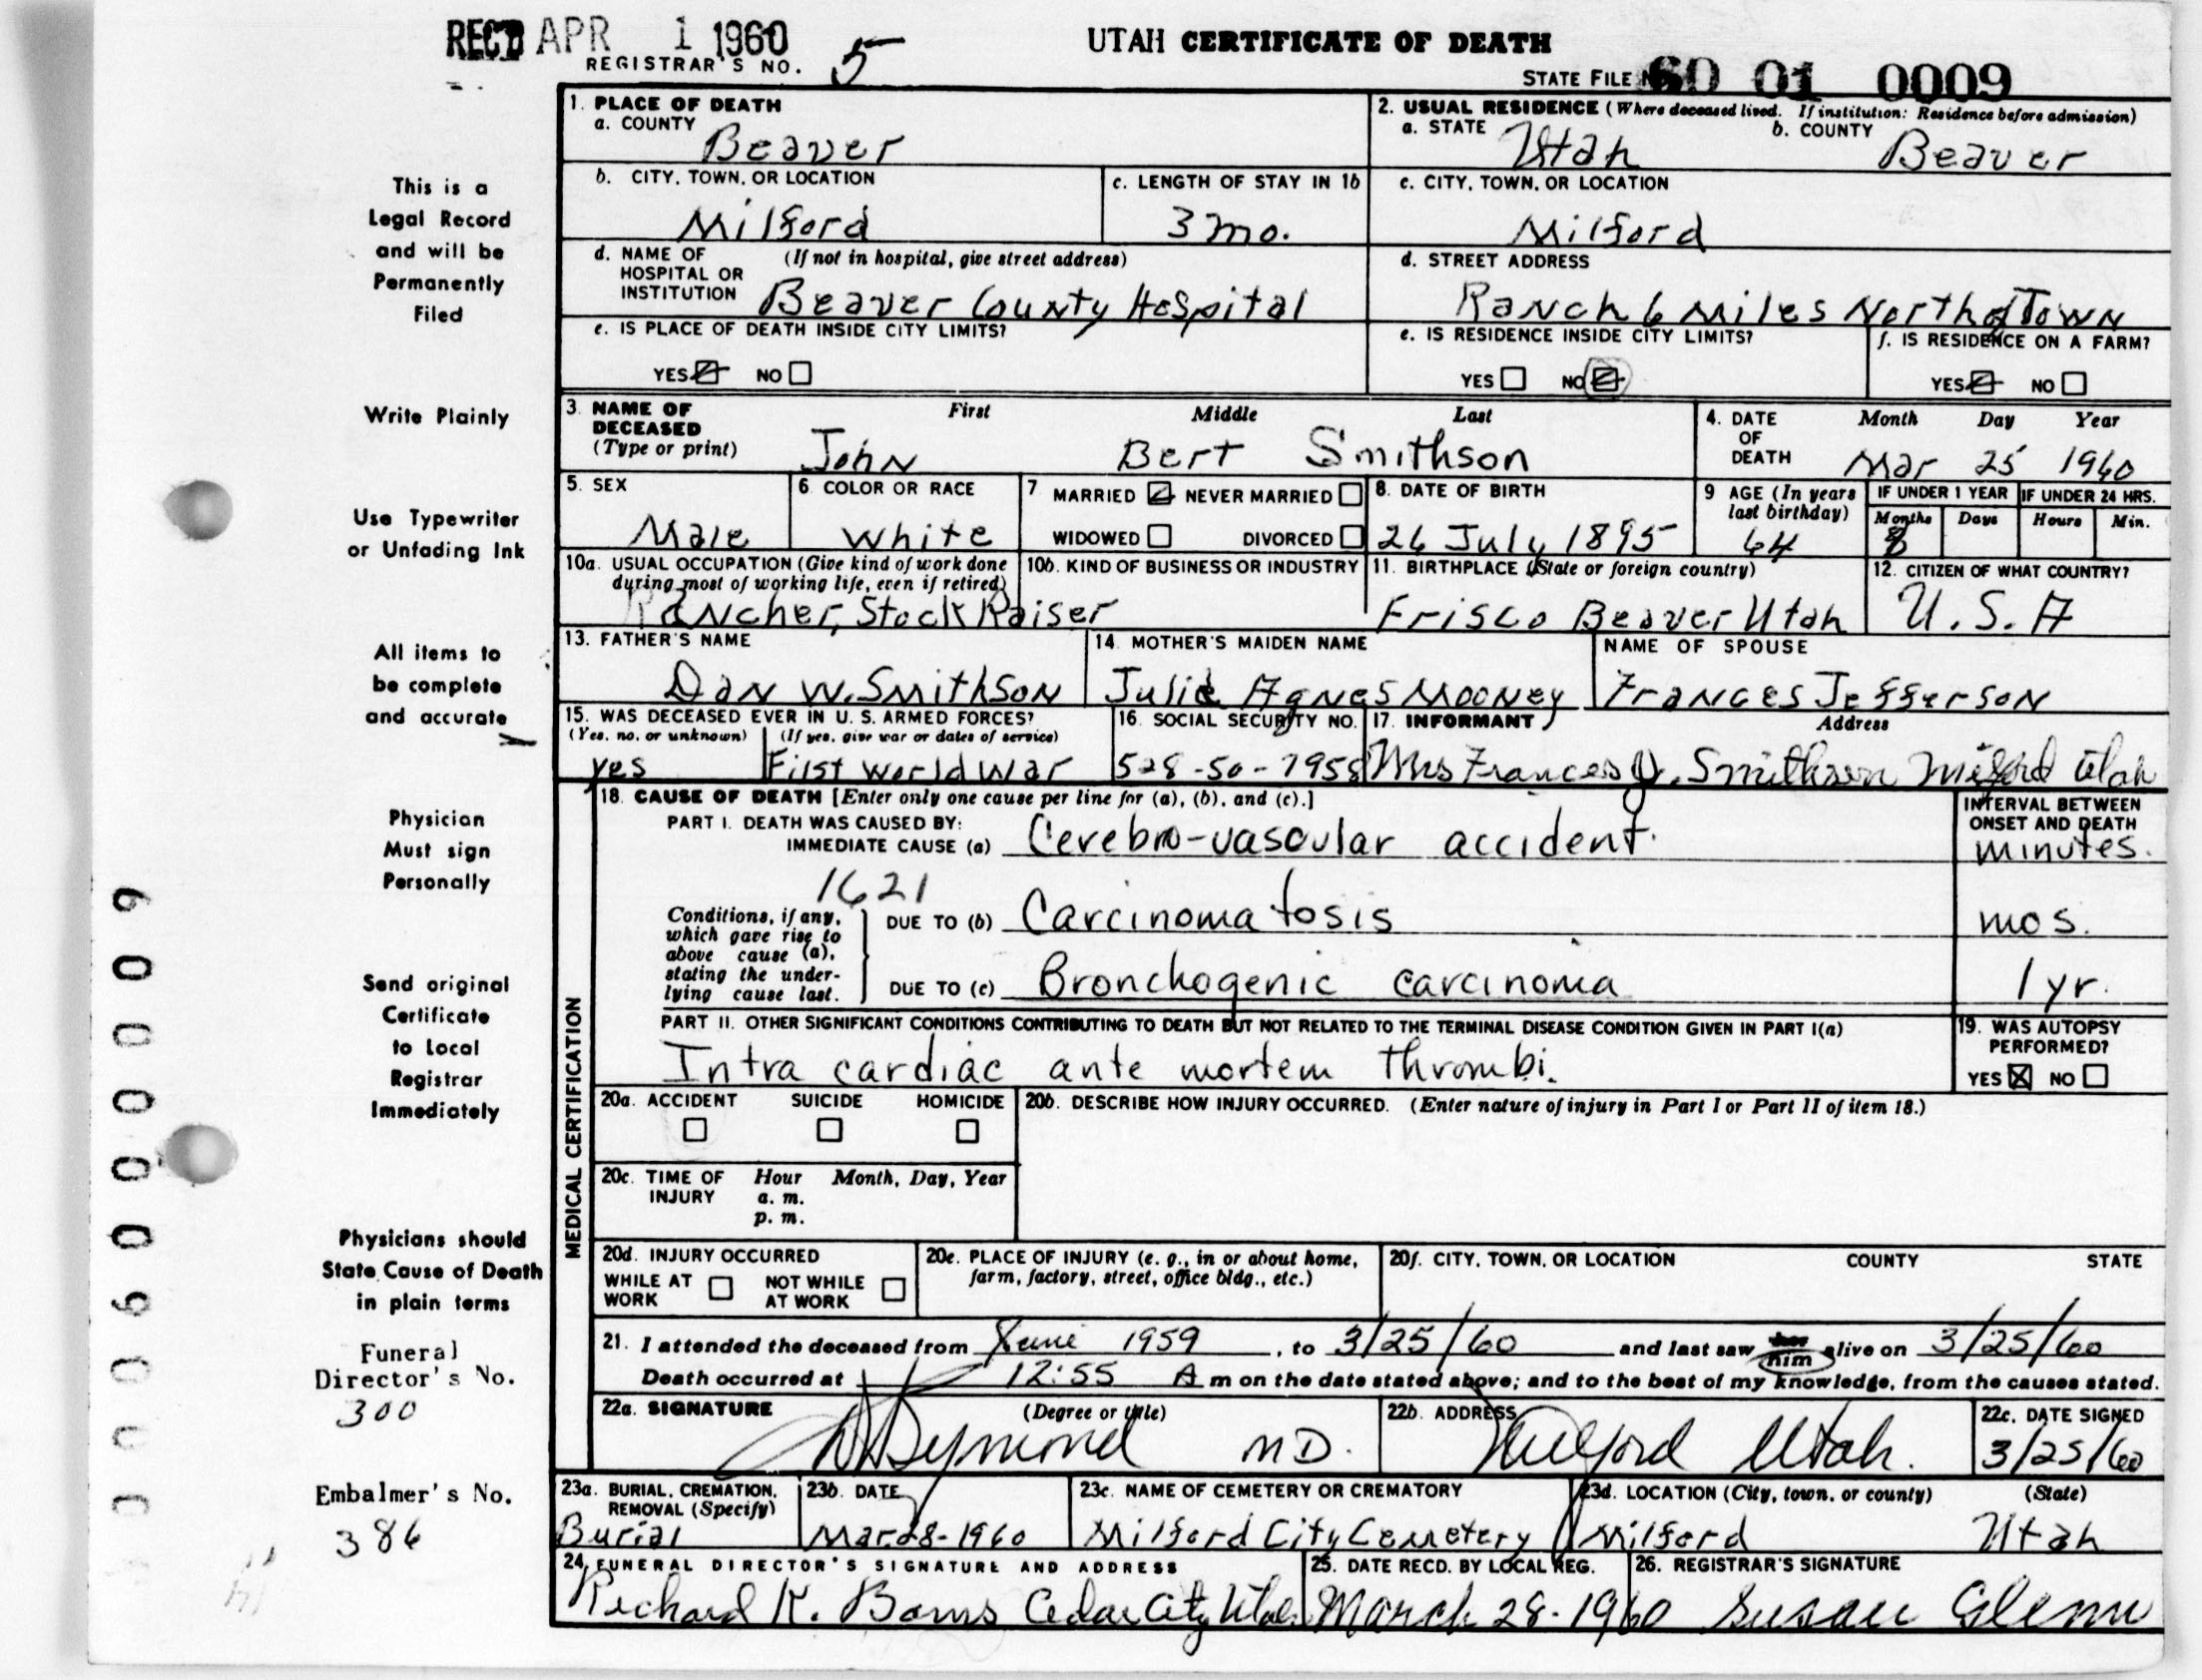 REC'D APR 1 1960
UTAH CERTIFICATE OF DEATH
REGISTRAR'S NO. 5
STATE FILE 60 01 0009
1. PLACE OF DEATH
a. COUNTY Beaver
2. USUAL RESIDENCE (Where deceased lived. If institution: Residence before admission)
a. STATE Utah b. COUNTY Beaver
This is a
Legal Record
and will be
Permanently
Filed
b. CITY, TOWN, OR LOCATION Milford
c. LENGTH OF STAY IN 1b 3 mo.
c. CITY, TOWN, OR LOCATION Milford
d. NAME OF HOSPITAL OR INSTITUTION (If not in hospital, give street address) Beaver County Hospital
d. STREET ADDRESS Ranch 6 Miles North of Town
e. IS PLACE OF DEATH INSIDE CITY LIMITS?
YES NO
e. IS RESIDENCE INSIDE CITY LIMITS?
YES NO
f. IS RESIDENCE ON A FARM?
YES NO
Write Plainly
3. NAME OF DECEASED (Type or print) First Middle Last
John Bert Smithson
4. DATE OF DEATH Month Day Year
Mar 25 1960
Use Typewriter
or Unfading Ink
5. SEX Male
6. COLOR OR RACE White
7 MARRIED NEVER MARRIED
WIDOWED DIVORCED
8. DATE OF BIRTH 26 July 1895
9 AGE (In years last birthday) 64
IF UNDER 1 YEAR Months 8 Days
IF UNDER 24 HRS. Hours Min.
10a. USUAL OCCUPATION (Give kind of work done during most of working life, even if retired)
Rancher, Stock Raiser
10b. KIND OF BUSINESS OR INDUSTRY
11. BIRTHPLACE (State or foreign country)
Frisco Beaver Utah
12. CITIZEN OF WHAT COUNTRY?
U.S.A
All items to
be complete
and accurate
13. FATHER'S NAME
Dan W. Smithson
14. MOTHER'S MAIDEN NAME
Julie Agnes Mooney
NAME OF SPOUSE
Frances Jefferson
15. WAS DECEASED EVER IN U. S. ARMED FORCES?
(Yes, no, or unknown) (If yes, give war or dates of service)
yes First World War
16. SOCIAL SECURITY NO.
528-50-7958
17. INFORMANT Address
Mrs Frances J. Smithson Milford Utah
Physician
Must sign
Personally
MEDICAL CERTIFICATION
18. CAUSE OF DEATH [Enter only one cause per line for (a), (b), and (c).]
INTERVAL BETWEEN ONSET AND DEATH
PART I. DEATH WAS CAUSED BY:
IMMEDIATE CAUSE (a) Cerebro-vascular accident. minutes.
1621
Conditions, if any, which gave rise to above cause (a), stating the underlying cause last.
DUE TO (b) Carcinomatosis mos.
DUE TO (c) Bronchogenic carcinoma 1 yr.
Send original
Certificate
to Local
Registrar
Immediately
PART II. OTHER SIGNIFICANT CONDITIONS CONTRIBUTING TO DEATH BUT NOT RELATED TO THE TERMINAL DISEASE CONDITION GIVEN IN PART I(a)
Intra cardiac ante mortem thrombi.
19. WAS AUTOPSY PERFORMED?
YES NO
20a. ACCIDENT SUICIDE HOMICIDE
20b. DESCRIBE HOW INJURY OCCURRED. (Enter nature of injury in Part I or Part II of item 18.)
20c. TIME OF INJURY Hour a. m. p. m. Month, Day, Year
Physicians should
State Cause of Death
in plain terms
20d. INJURY OCCURRED
WHILE AT WORK NOT WHILE AT WORK
20e. PLACE OF INJURY (e. g., in or about home, farm, factory, street, office bldg., etc.)
20f. CITY, TOWN, OR LOCATION COUNTY STATE
21. I attended the deceased from June 1959, to 3/25/60 and last saw him alive on 3/25/60
Death occurred at 12:55 A m on the date stated above; and to the best of my knowledge, from the causes stated.
Funeral
Director's No.
300
22a. SIGNATURE (Degree or title)
Symond MD.
22b. ADDRESS
Milford Utah.
22c. DATE SIGNED
3/25/60
Embalmer's No.
386
23a. BURIAL, CREMATION, REMOVAL (Specify)
Burial
23b. DATE
Mar 28-1960
23c. NAME OF CEMETERY OR CREMATORY
Milford City Cemetery
23d. LOCATION (City, town, or county) (State)
Milford Utah
24. FUNERAL DIRECTOR'S SIGNATURE AND ADDRESS
Richard K. Cedar City Utah
25. DATE RECD. BY LOCAL REG.
March 28-1960
26. REGISTRAR'S SIGNATURE
Susan Glenn